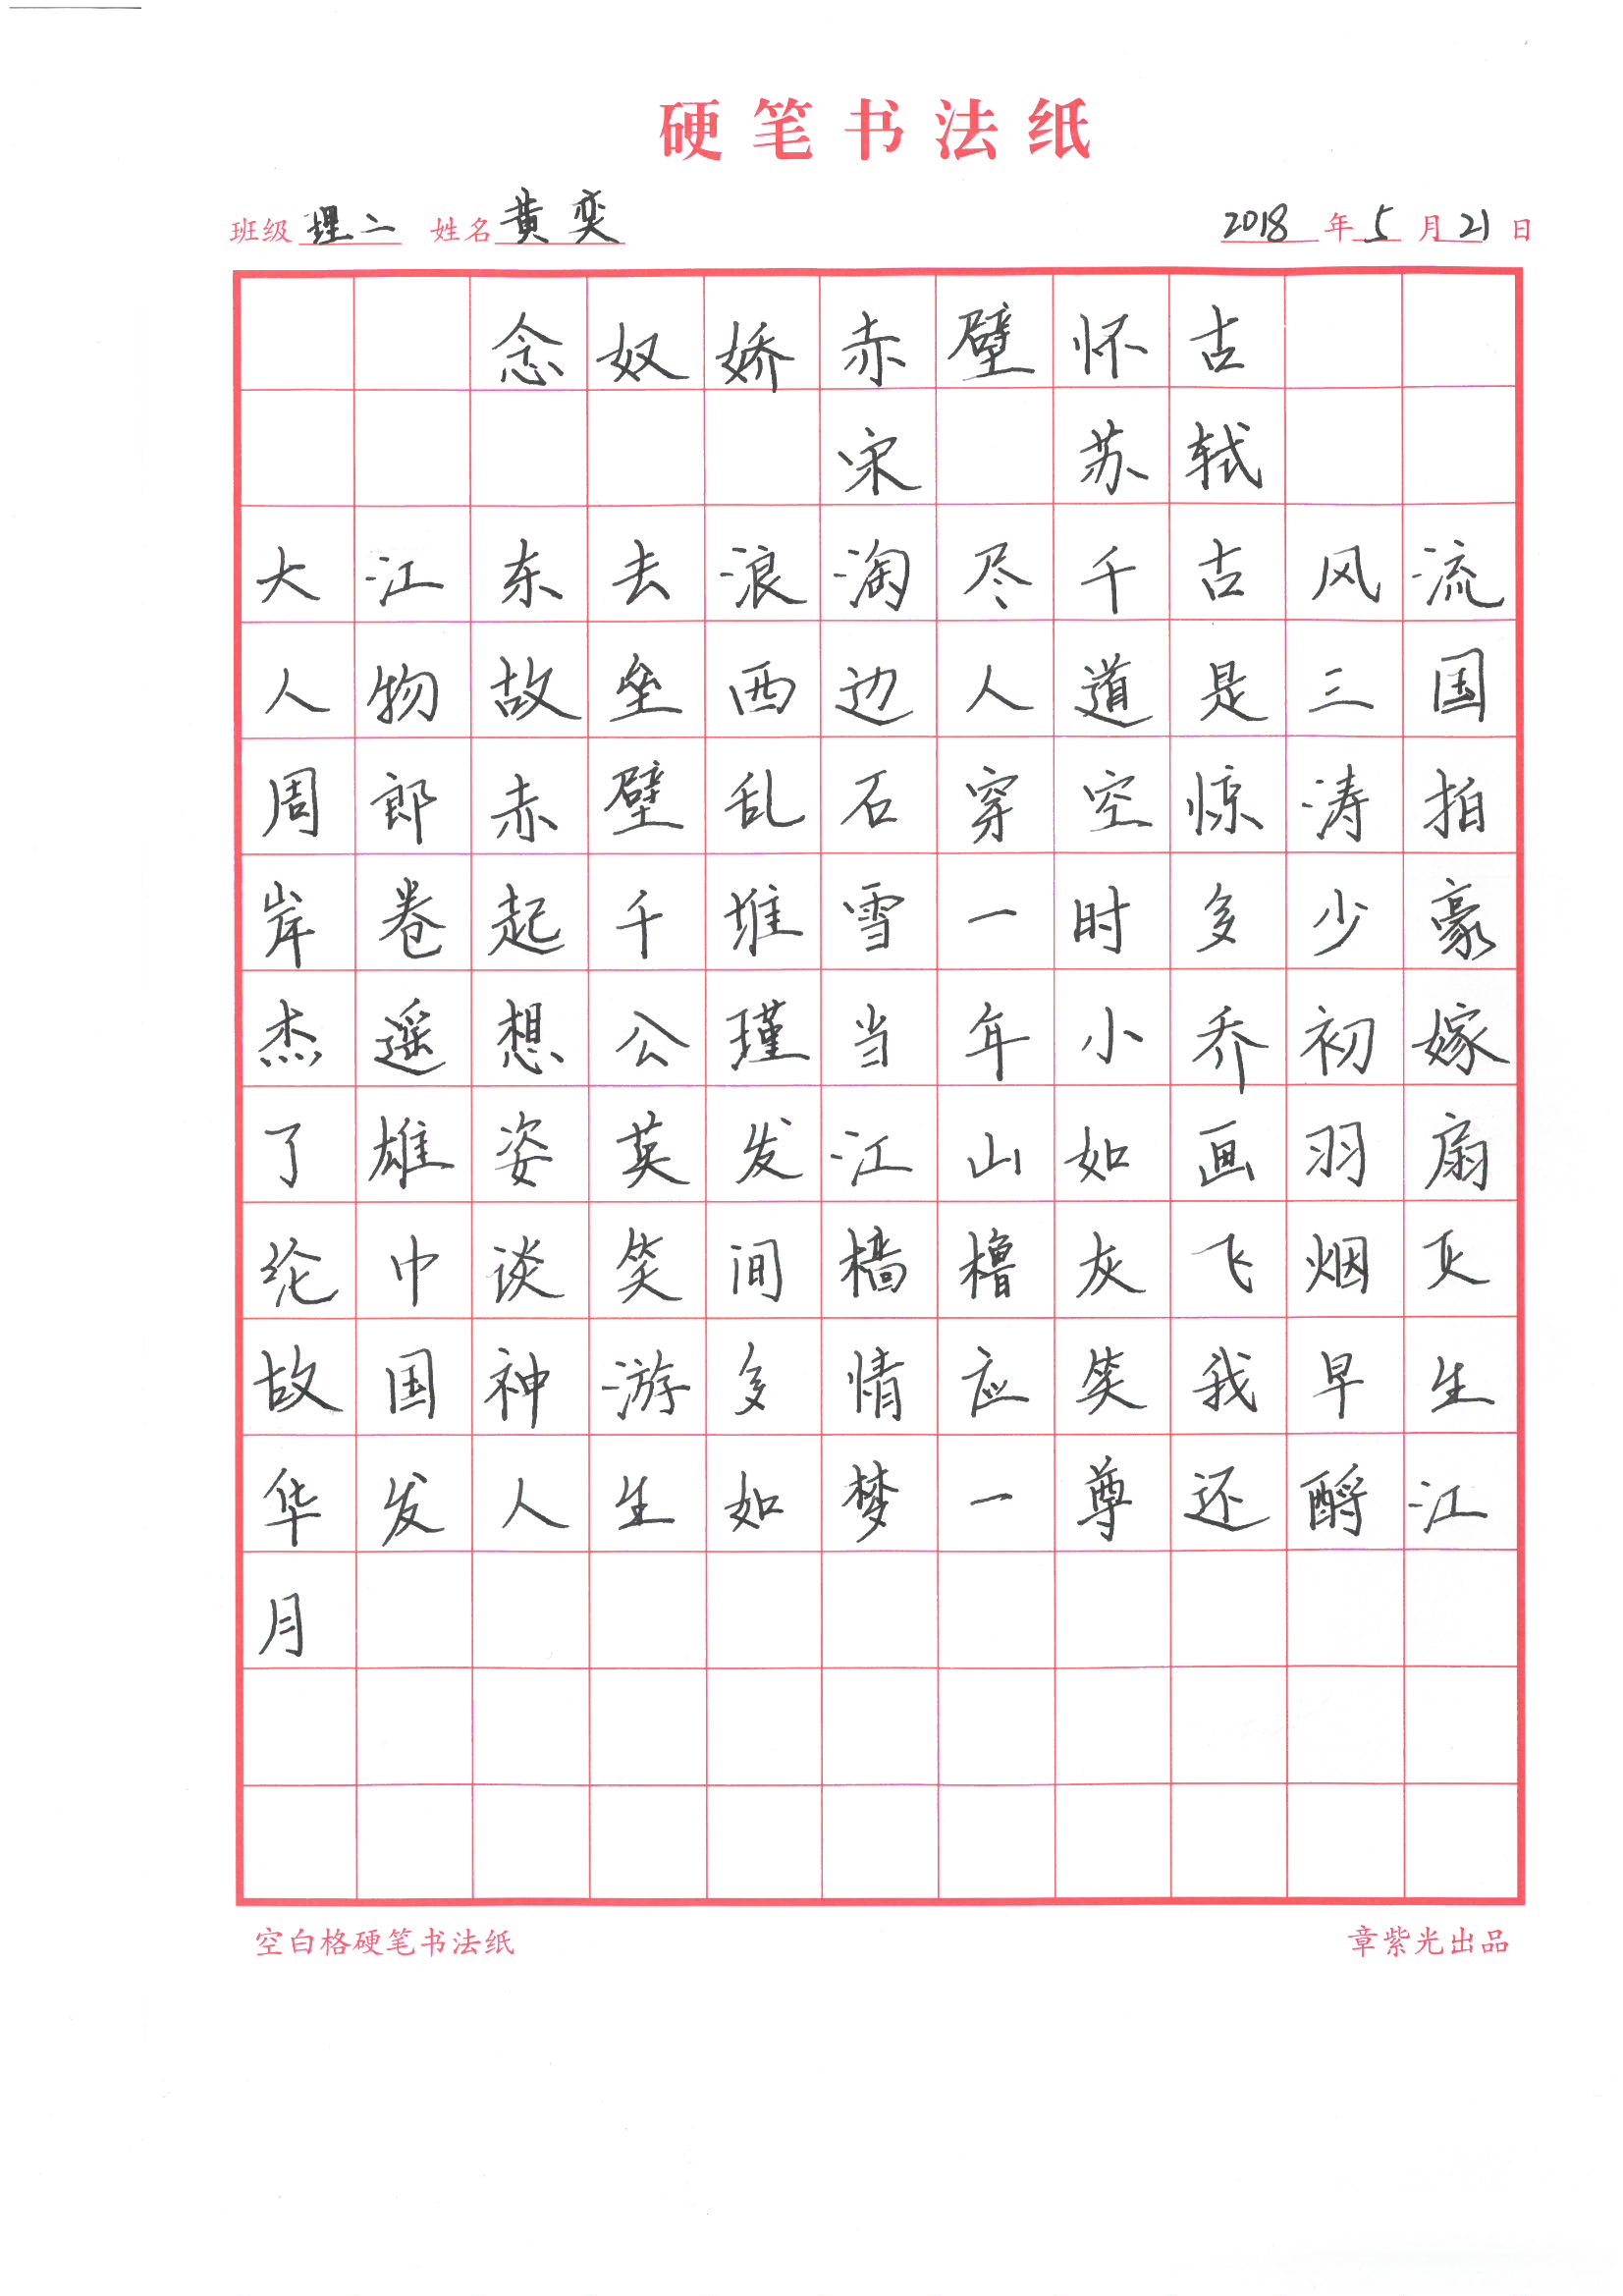 硬笔书法纸
班级 理二 姓名 黄奕 2018 年 5 月 21 日
念奴娇赤壁怀古
宋 苏轼
大江东去浪淘尽千古风流
人物故垒西边人道是三国
周郎赤壁乱石穿空惊涛拍
岸卷起千堆雪一时多少豪
杰遥想公瑾当年小乔初嫁
了雄姿英发江山如画羽扇
纶巾谈笑间樯橹灰飞烟灭
故国神游多情应笑我早生
华发人生如梦一尊还酹江
月
空白格硬笔书法纸 章紫光出品